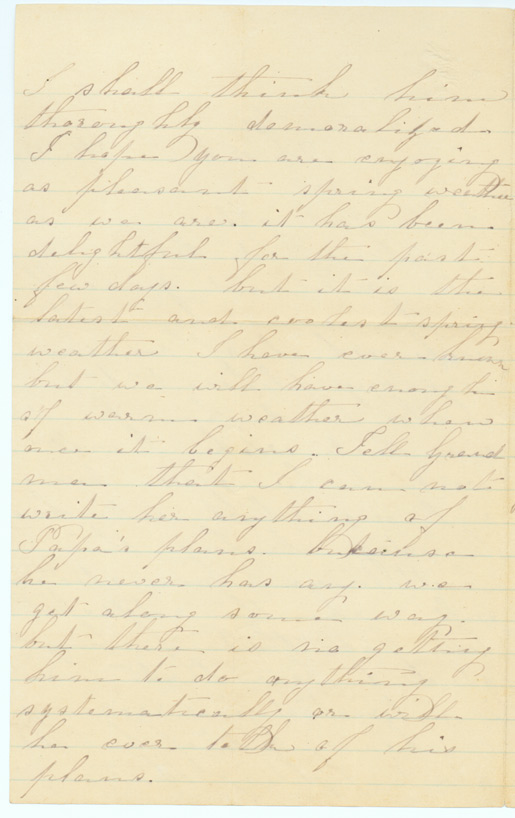 I shall think him
thoroughly demoralized.
I hope you are enjoying
as pleasant spring weather
as we are. it has been
delightful for the past
few days. but it is the
latest and coolest spring
weather I have ever known
but we will have enough
of warm weather when
once it begins. Tell Grand
ma that I can not
write her anything of
Papa's plans. because
he never has any. we
get along some way.
but there is no getting
him to do anything
systematically or will
he ever talk of his
plans.